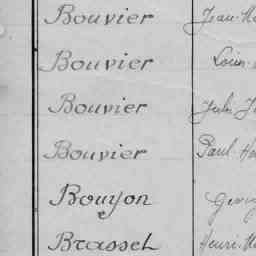 Bouvier Jean-
Bouvier Louis
Bouvier Jules
Bouvier Paul-
Bouyon
Brassel Henri-